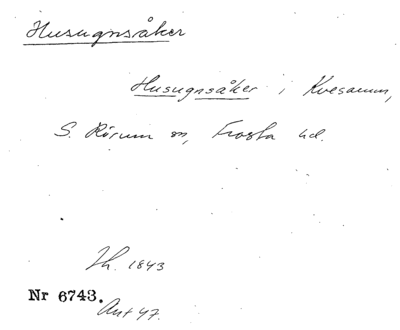 Husugnsåker
Husugnsåker i Kvesarum,
S. Rörum sn, Frosta hd.
Jh. 1843
Nr 6743.
Ant 47.